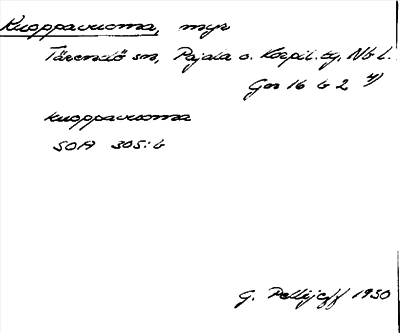 Kuoppavuoma, myr
Tärendö sn, Pajala o. Korpil. tg, Nb l.
Gen 16 b 2 4)
kuoppavuoma
SOA 305:b
G. Pellijeff 1950